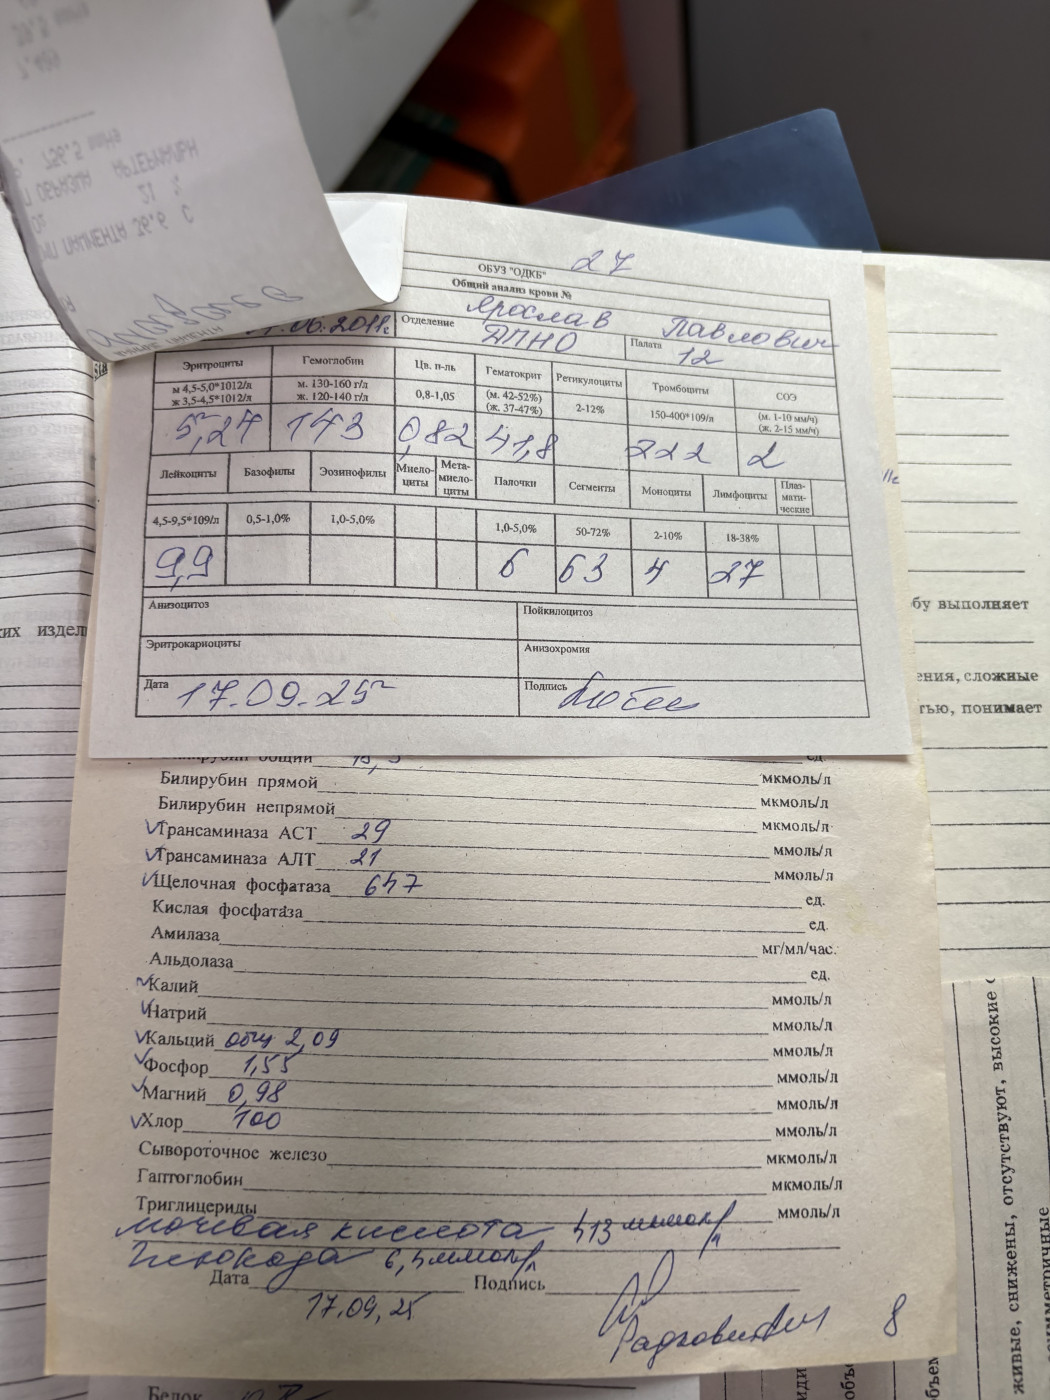 27
ОБУЗ "ОДКБ"
Общий анализ крови №
Ярослав Павлович
.06.2011г. Отделение ДПНО Палата 12
Эритроциты Гемоглобин Цв. п-ль Гематокрит Ретикулоциты Тромбоциты СОЭ
м 4,5-5,0*1012/л м. 130-160 г/л 0,8-1,05 (м. 42-52%) 2-12% 150-400*109/л (м. 1-10 мм/ч)
ж 3,5-4,5*1012/л ж. 120-140 г/л (ж. 37-47%) (ж. 2-15 мм/ч)
5,27 143 0,82 41,8 222 2
Лейкоциты Базофилы Эозинофилы Миело-циты Мета-миело-циты Палочки Сегменты Моноциты Лимфоциты Плаз-мати-ческие
4,5-9,5*109/л 0,5-1,0% 1,0-5,0% 1,0-5,0% 50-72% 2-10% 18-38%
9,9 6 63 4 27
Анизоцитоз Пойкилоцитоз
Эритрокариоциты Анизохромия
Дата 17.09.25 Подпись
Билирубин общий ед.
Билирубин прямой мкмоль/л
Билирубин непрямой мкмоль/л
Трансаминаза АСТ 29 мкмоль/л
Трансаминаза АЛТ 21 ммоль/л
Щелочная фосфатаза 647 ммоль/л
Кислая фосфатаза ед.
Амилаза ед.
Альдолаза мг/мл/час.
Калий ед.
Натрий ммоль/л
Кальций общ 2,09 ммоль/л
Фосфор 1,55 ммоль/л
Магний 0,98 ммоль/л
Хлор 100 ммоль/л
Сывороточное железо ммоль/л
Гаптоглобин мкмоль/л
Триглицериды мкмоль/л
ммоль/л
мочевая кислота 413 ммоль/л
Глюкоза 6,4 ммоль/л
Дата Подпись
17.09.25
8
бу выполняет
ения, сложные
тью, понимает
ких издел
живые, снижены, отсутствуют, высокие
Белок